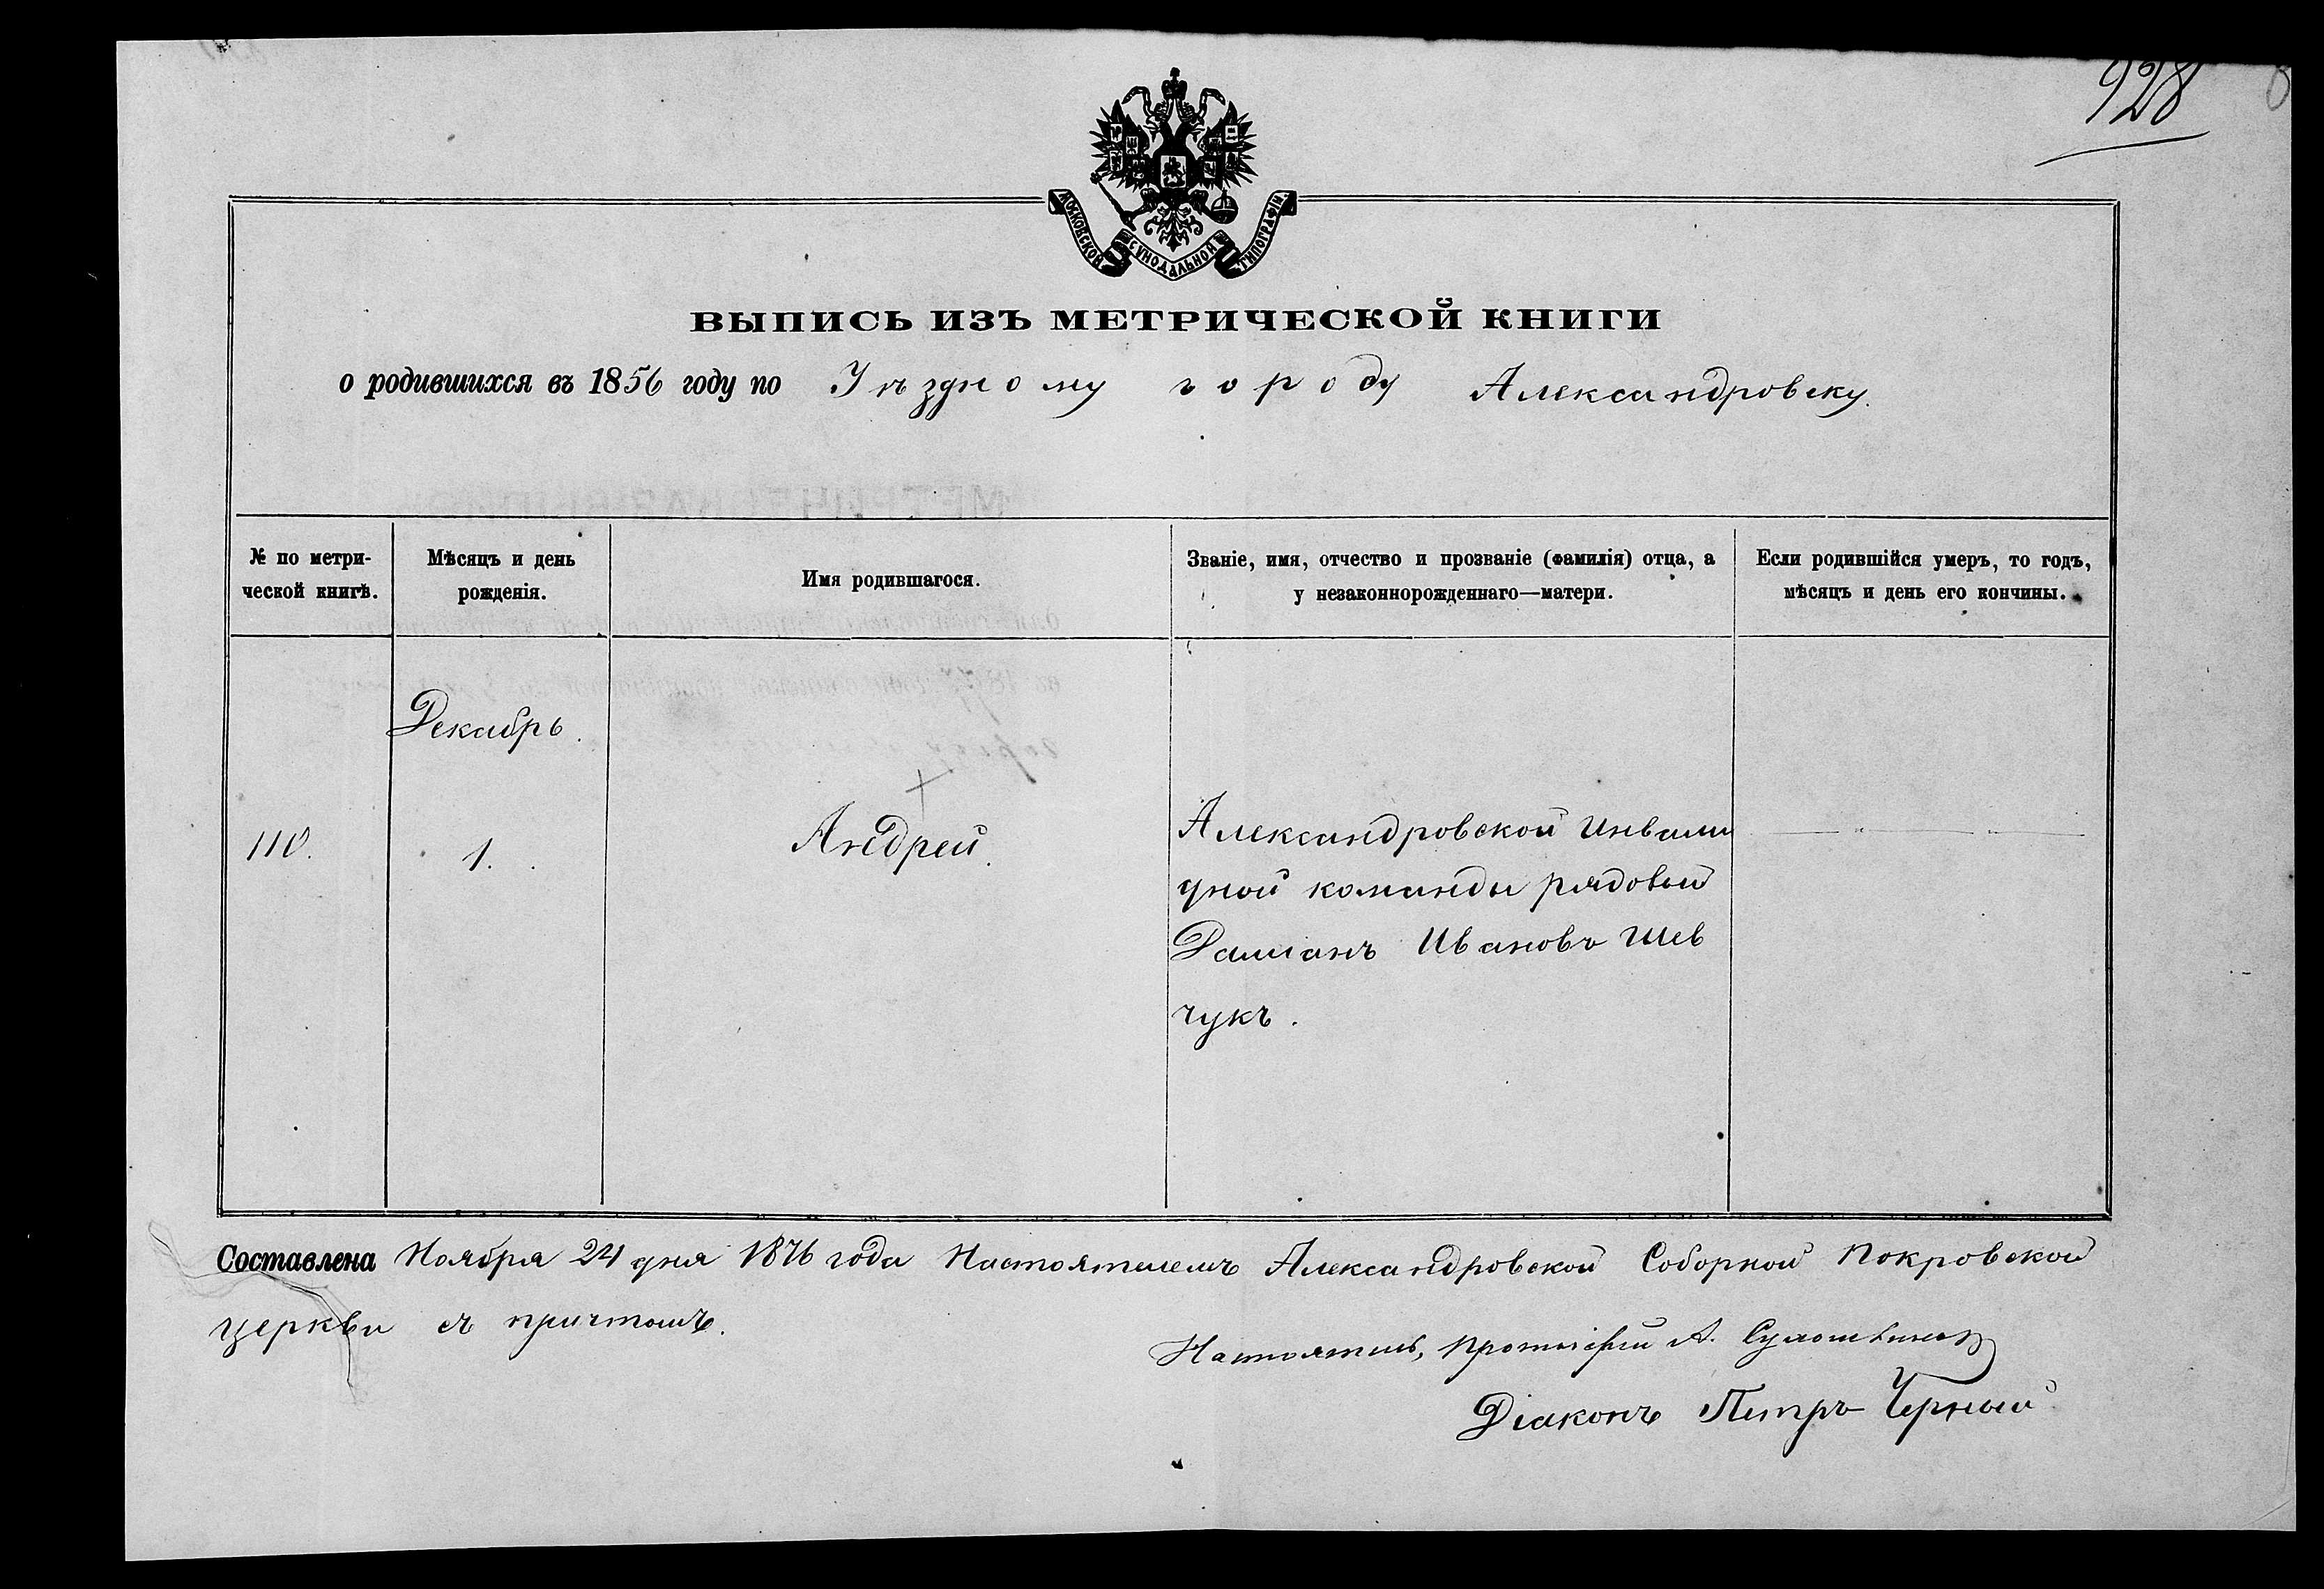 928
МОСКОВСКОЙ СУНОДАЛЬНОЙ ТИПОГРАФІИ
ВЫПИСЬ ИЗЪ МЕТРИЧЕСКОЙ КНИГИ
о родившихся въ 1856 году по Уѣздному городу Александровску.
№ по метри-
ческой книгѣ.
Мѣсяцъ и день
рожденія.
Имя родившагося.
Званіе, имя, отчество и прозваніе (фамилія) отца, а
у незаконнорожденнаго—матери.
Если родившійся умеръ, то годъ,
мѣсяцъ и день его кончины.
Декабрь.
110.
1.
Андрей.
Александровской инвали
дной команды рядовый
Дамианъ Ивановъ Шев
чукъ.
Составлена Ноября 24 дня 1876 года Настоятелемъ Александровской Соборной Покровской
церкви съ причтомъ.
Настоятель, протоіерей А.
Діаконъ Петръ Черный